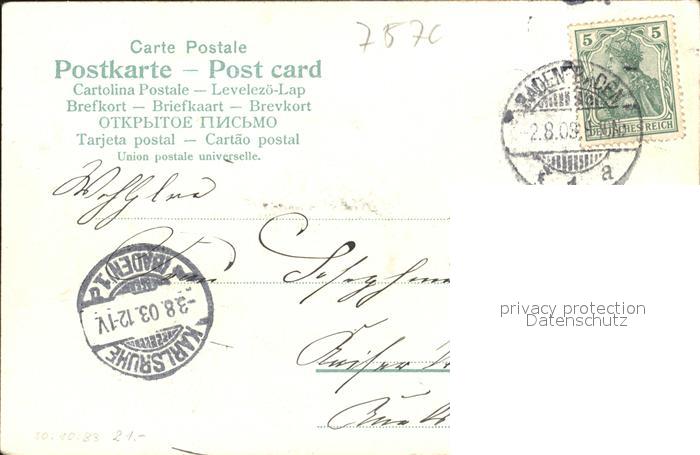 7B7C
Carte Postale
Postkarte – Post card
Cartolina Postale – Levelező-Lap
Brefkort – Briefkaart – Brevkort
ОТКРЫТОЕ ПИСЬМО
Tarjeta postal – Cartão postal
Union postale universelle.
5 5
DEUTSCHES REICH
BADEN-BADEN
2.8.03.
1 a
KARLSRUHE
-3.8.03.12-1V.
(BADEN) 1
Kaiser
privacy protection
Datenschutz
10.10.83 21.-